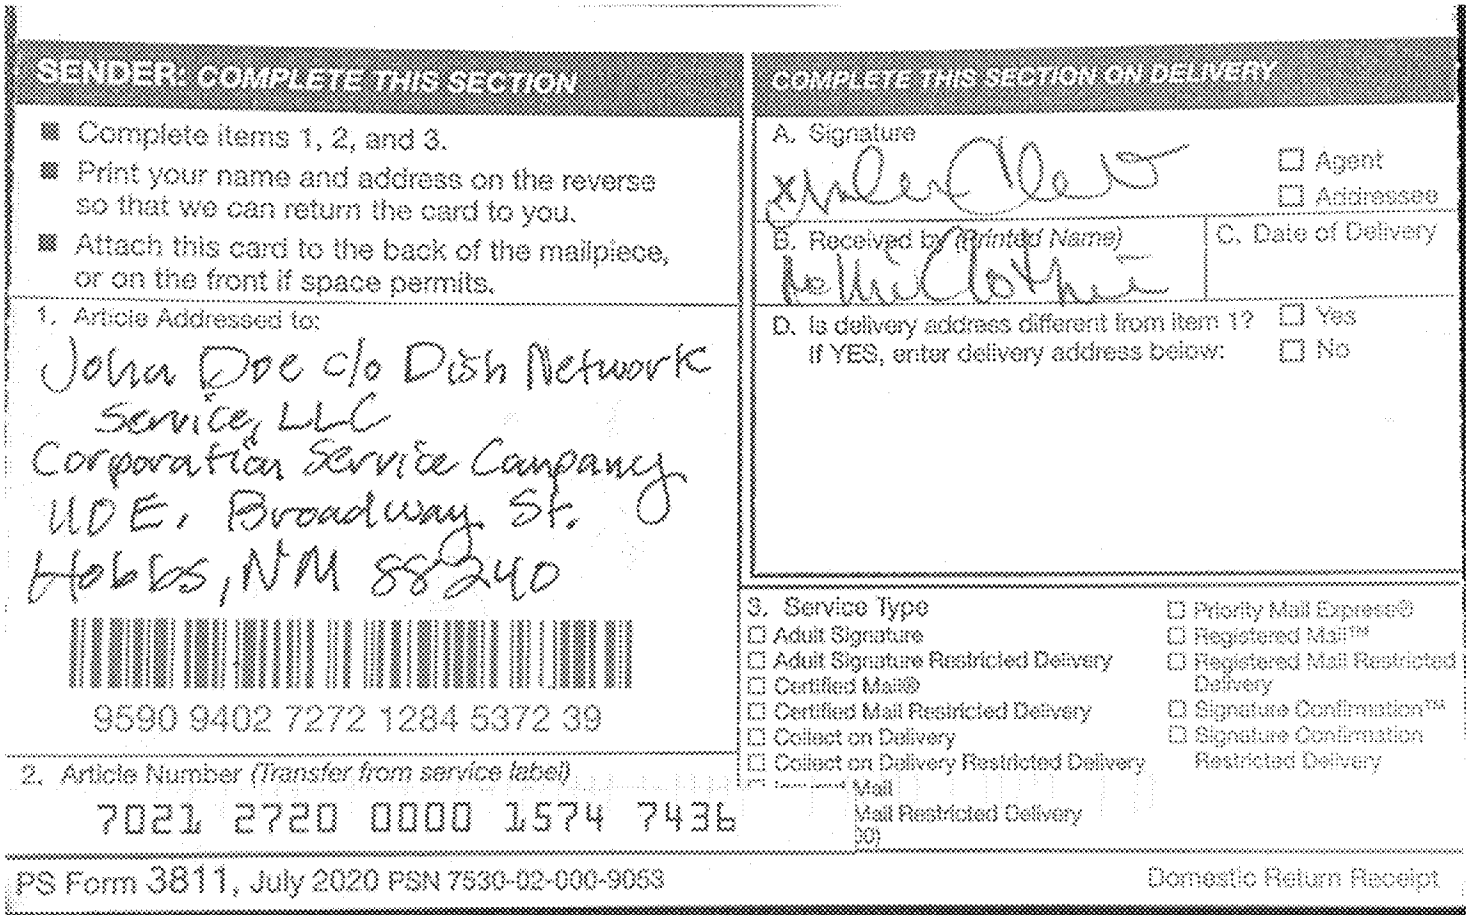 SENDER: COMPLETE THIS SECTION
■ Complete items 1, 2, and 3.
■ Print your name and address on the reverse
so that we can return the card to you.
■ Attach this card to the back of the mailpiece,
or on the front if space permits.
1. Article Addressed to:
John Doe c/o Dish Network
Service, LLC
Corporation Service Company
110 E. Broadway St.
Hobbs, NM 88240
9590 9402 7272 1284 5372 39
2. Article Number (Transfer from service label)
7021 2720 0000 1574 7436
COMPLETE THIS SECTION ON DELIVERY
A. Signature
X
☐ Agent
☐ Addressee
B. Received by (Printed Name)
C. Date of Delivery
D. Is delivery address different from item 1? ☐ Yes
If YES, enter delivery address below: ☐ No
3. Service Type
☐ Adult Signature
☐ Adult Signature Restricted Delivery
☐ Certified Mail®
☐ Certified Mail Restricted Delivery
☐ Collect on Delivery
☐ Collect on Delivery Restricted Delivery
Mail
Mail Restricted Delivery
00)
☐ Priority Mail Express®
☐ Registered Mail™
☐ Registered Mail Restricted
Delivery
☐ Signature Confirmation™
☐ Signature Confirmation
Restricted Delivery
PS Form 3811, July 2020 PSN 7530-02-000-9053
Domestic Return Receipt